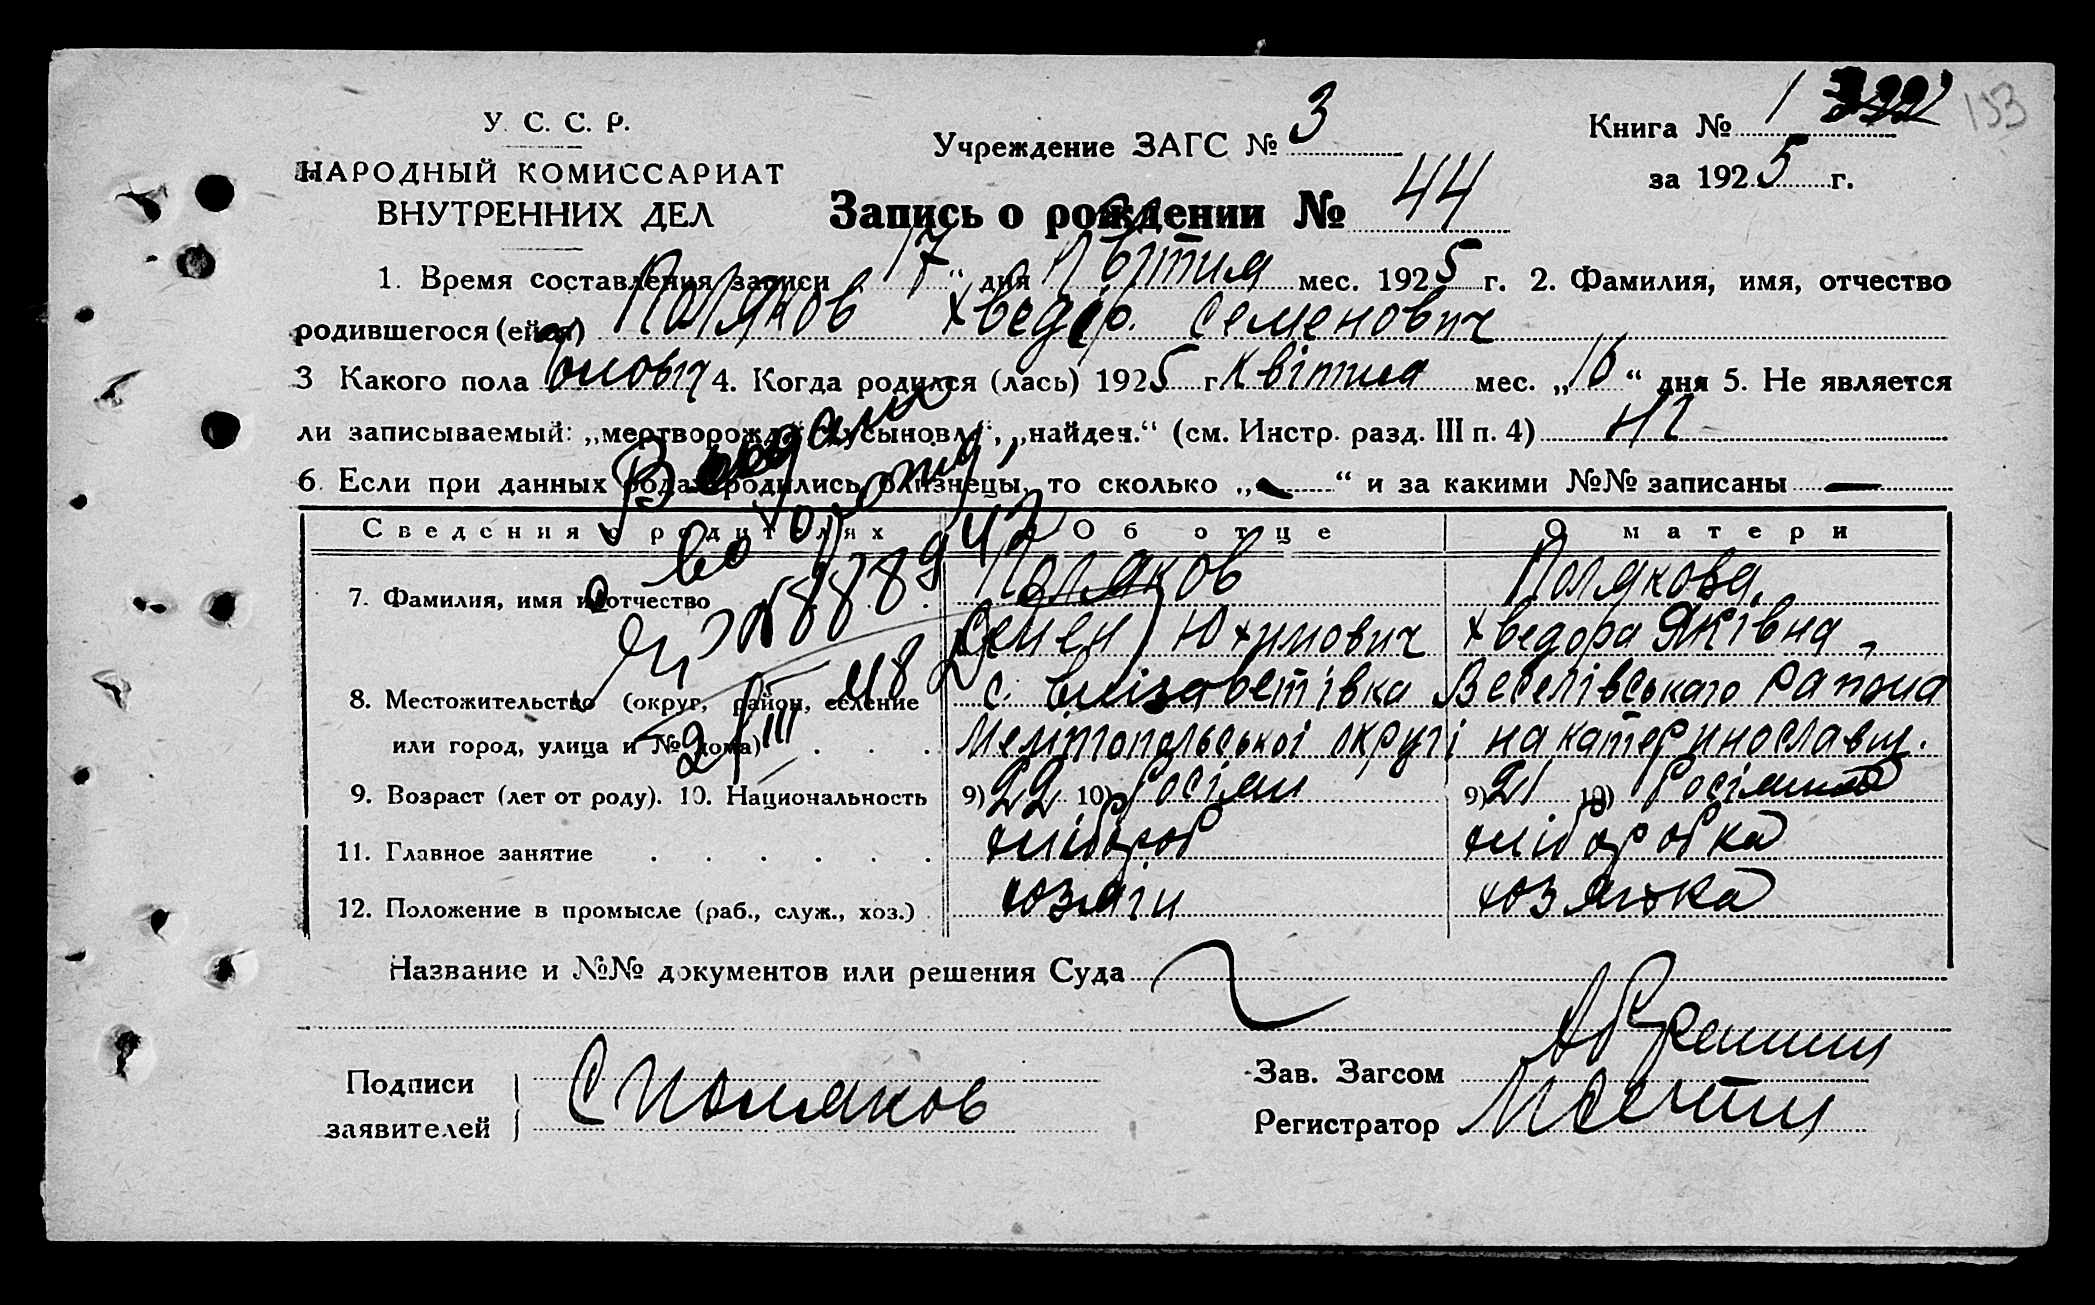 У. С. С. Р.
НАРОДНЫЙ КОМИССАРИАТ
ВНУТРЕННИХ ДЕЛ
Учреждение ЗАГС № 3
Книга № 1
153
за 1925 г.
Запись о рождении № 44
1. Время составления записи 17 " дня Квітня мес. 1925 г. 2. Фамилия, имя, отчество
родившегося (ейся) Поляков Хведір. Семенович
3 Какого пола 4. Когда родился (лась) 1925 г. Квітня мес. „16“ дня 5. Не является
ли записываемый: „мертворожд“ „усыновл“, „найден.“ (см. Инстр. разд. III п. 4) Ні
6. Если при данных родах родились близнецы, то сколько „—“ и за какими №№ записаны —
Сведения о родителях Об отце О матери
7. Фамилия, имя и отчество Поляков Полякова
Семен Юхимович Хведора Яківна
8. Местожительство (округ, район, селение с. Елізаветівка Веселівського района
или город, улица и № дома) Мелітопольської округі на катеринославщ.
9. Возраст (лет от роду). 10. Национальность 9) 22 10) Росіян 9) 21 10) Росіянка
11. Главное занятие хлібороб хліборобка
12. Положение в промысле (раб., служ., хоз.) хозяін хозяйка
Название и №№ документов или решения Суда
Подписи
заявителей С Поляков
Зав. Загсом
Регистратор